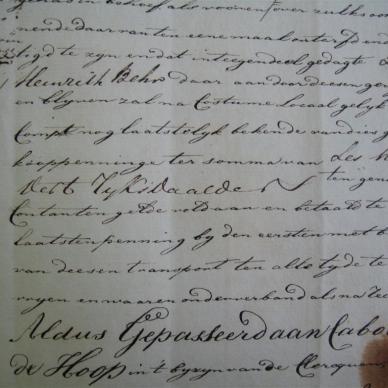 en behoef als vooren over zulks
nende daar van ten eene maal onterfd en
tigd te zyn en dat integendeel gedagte
Heinrich Behr daar aan door deesen
en blyven zal na Costume Locaal
Compt nog laatstelyk bekende van dies
kooppenninge ter somma van Ses
Dert Ryxsdaalde
Contanten gelde voldaan en betaald te
laatsten penning by den eersten met
van deesen transport ten alle tyde te
vryen en waaren onder verband als na
Aldus Gepasseerd aan Cabo
de Hoop in't bysyn van de Clercquen